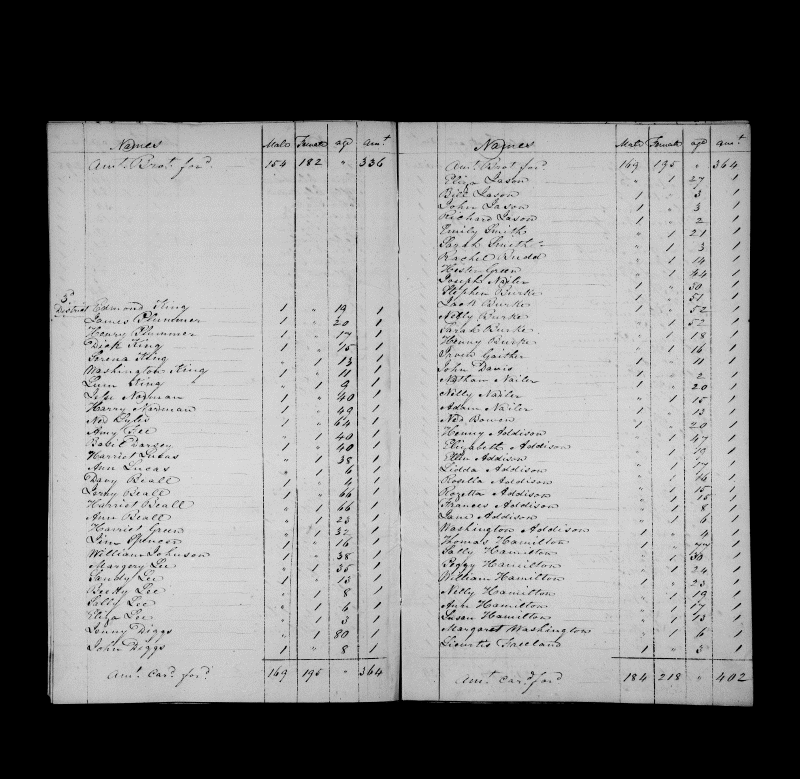 Names Male Female age amt
Amt. Brot. ford. 154 182 " 336
5
District Edmond King 1 " 19 1
James Plummer 1 " 20 1
Henry Plummer 1 " 17 1
Dick King 1 " 15 1
Serena King " 1 13 1
Washington King 1 " 11 1
King " 1 9 1
Norman 1 " 40 1
Harry Norman 1 " 49 1
Ned 1 " 64 1
Amy Lee " 1 40 1
Dorsey 1 " 40 1
Harriet Lucas " 1 38 1
Ann Lucas " 1 6 1
Davy Beall 1 " 4 1
Beall 1 " 66 1
Harriet Beall " 1 66 1
Ann Beall " 1 23 1
Harriet Green " 1 32 1
Jim Spencer 1 " 16 1
William Johnson 1 " 38 1
Margery Lee " 1 35 1
Sandy Lee 1 " 13 1
Betty Lee " 1 8 1
Sally Lee " 1 6 1
Eliza Lee " 1 3 1
Diggs " 1 80 1
John Diggs 1 " 8 1
Amt. Card. ford. 169 195 " 364
Names Male Female age amt
Amt Brot ford 169 195 " 364
Eliza Jason " 1 27 1
Bill Jason 1 " 3 1
John Jason 1 " 3 1
Richard Jason 1 " 2 1
Emily Smith " 1 21 1
Sarah Smith " 1 3 1
Rachel Budd " 1 14 1
Hester Green " 1 44 1
Joseph Nailer 1 " 30 1
Stephen Burke 1 " 51 1
Jack Burke 1 " 52 1
Nilly Burke " 1 52 1
Sarah Burke " 1 18 1
Henny Burke " 1 16 1
Gaither 1 " 11 1
John Davis 1 " 2 1
Nathan Nailer 1 " 20 1
Nilly Nailer " 1 15 1
Adam Nailer 1 " 13 1
Ned Bowen 1 " 20 1
Henny Addison " 1 47 1
Elizabeth Addison " 1 19 1
Ellen Addison " 1 17 1
Addison " 1 16 1
Rosetta Addison " 1 15 1
Addison " 1 1
Frances Addison " 1 8 1
Jane Addison " 1 6 1
Washington Addison 1 " 4 1
Thomas Hamilton 1 " 1
Sally Hamilton " 1 1
Peggy Hamilton " 1 24 1
William Hamilton 1 " 23 1
Nilly Hamilton " 1 19 1
Ann Hamilton " 1 17 1
Susan Hamilton " 1 13 1
Margaret Washington " 1 6 1
Freeland 1 " 3 1
Amt. Card. ford 184 218 " 402